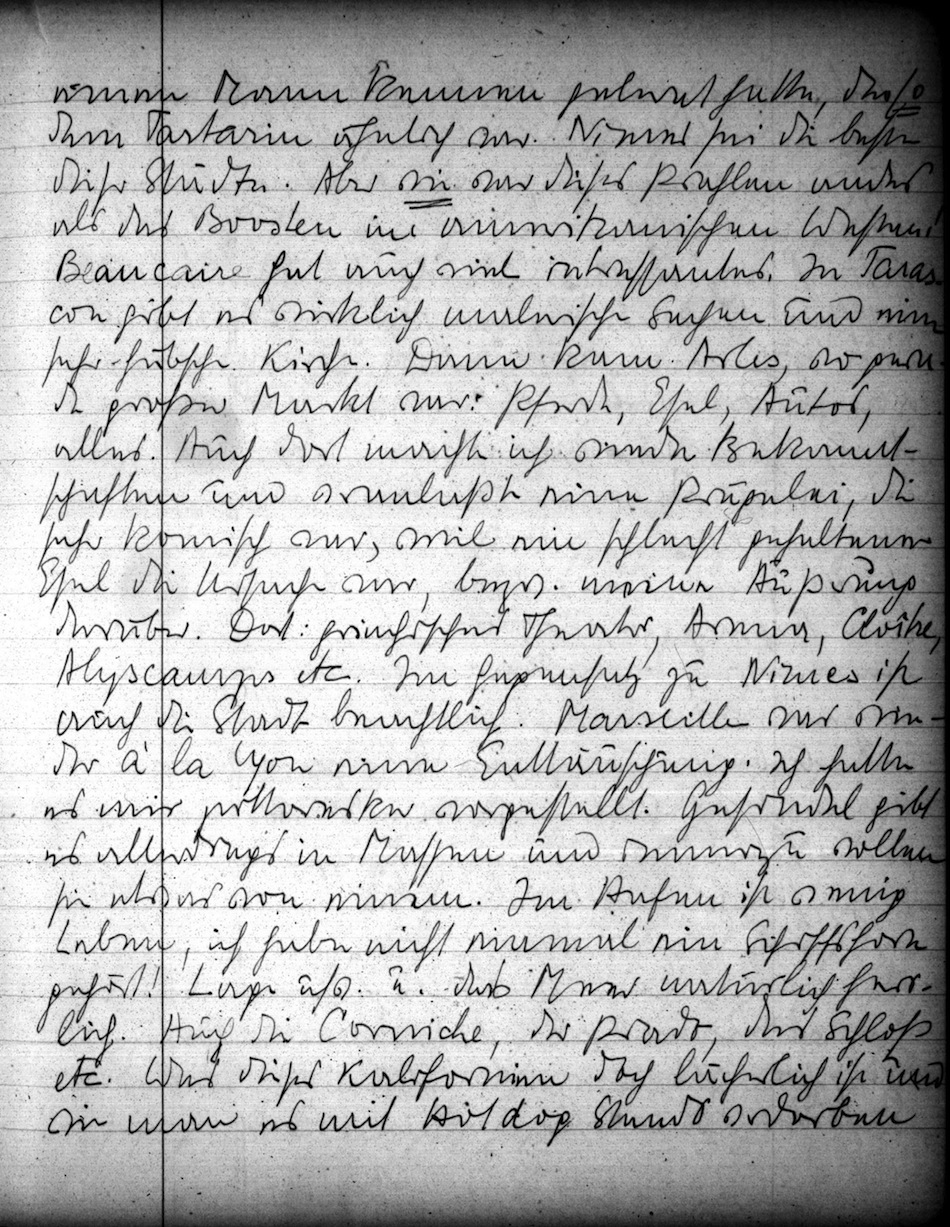 einen Mann kennen gelernt hatte, der so
dem Tartarin ähnlich war. Nimes sei die beste
dieser Städte. Aber wie war dieses Prahlen anders
als das Boosten im amerikanischen Westen!
Beaucaire hat auch viel interessantes. In Taras-
con gibt es wirklich malerische Sachen und eine
sehr hübsche Kirche. Dann kam Arles, wo gera-
de großer Markt war: Pferde, Esel, Autos,
alles. Auch dort machte ich wieder Bekannt-
schaften und veranlaßte eine Prügelei, die
sehr komisch war, weil ein schlecht gehaltener
Esel die Ursache war, bezw. meine Äußerung
darüber. Dort: griechisches Theater, Arena, Cloître,
Alyscamps etc. Im Gegensatz zu Nimes ist
auch die Stadt beachtlich. Marseille war wie-
der à la Lyon eine Enttäuschung. Ich hatte
es mir pittoresker vorgestellt. Gesindel gibt
es allerdings in Massen und immerzu wollen
sie etwas von einem. Im Hafen ist wenig
Leben, ich habe nicht einmal ein Schiffshorn
gehört! Lage usw. u. das Meer natürlich herr-
lich. Auch die Corniche, der Prado, das Schloß
etc. Was dieses Kalifornien doch lächerlich ist und
wie man es mit Hot dog Stands verdorben